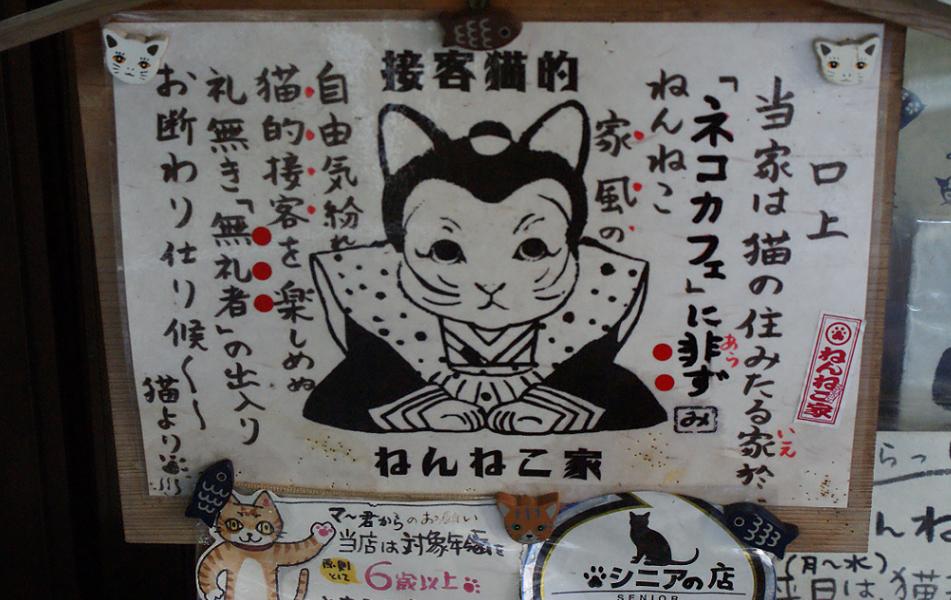 口上
当家は猫の住みたる家
いえ
「ネコカフェ」に非ず
あら
ねんねこ
家風の
接客猫的
自由気紛れ
猫的接客を楽しめぬ
礼無き「無礼者」の出入り
お断わり仕り候〜〜
猫より
ねんねこ家
ねんねこ家
み
マ〜君からのお願い
当店は対象年齢を
原則として
6歳以上
シニアの店
SENIOR
らっ
んね
(月〜水)
日は、猫